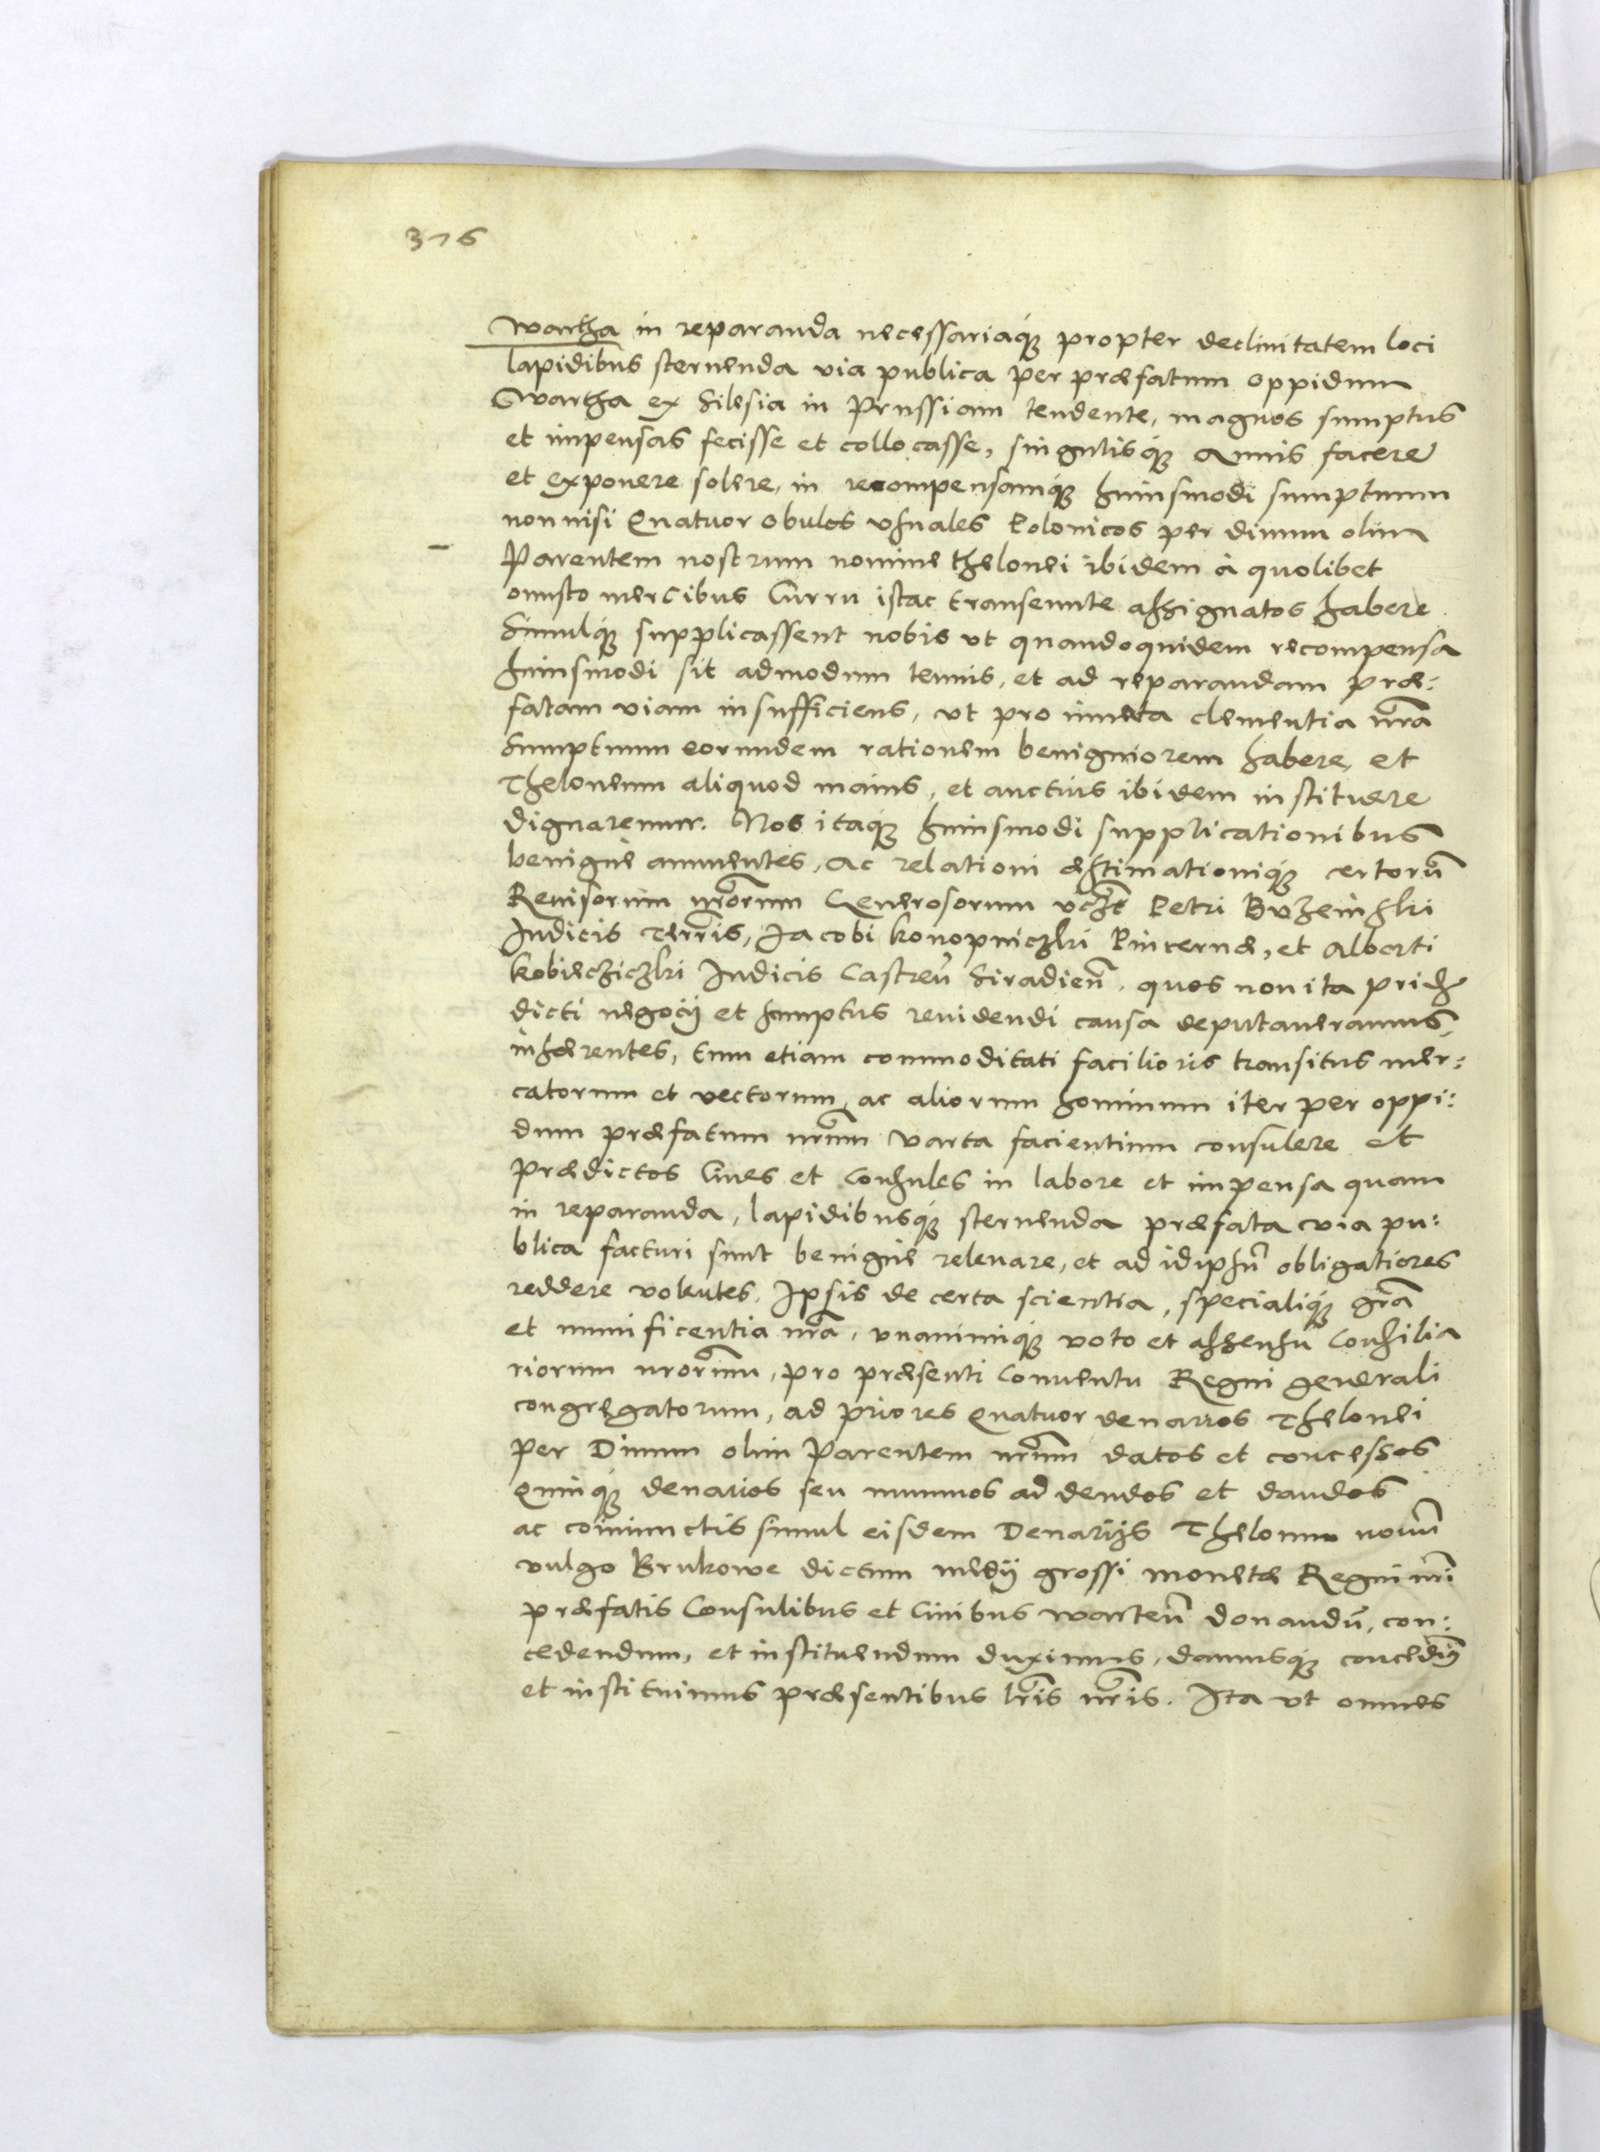 376
Wartha in reparanda necessariaq; propter declivitatem loci
lapidibus sternenda via publica per præfatum oppidum
Wartha ex Silesia in Prussiam tendente, magnos sumptus
et impensas fecisse et collocasse, singulisq; Annis facere
et exponere solere, in recompensamq; huiusmodi sumptuum
non nisi Quatuor obulos usuales Polonicos per divum olim
Parentem nostrum nomine thelonei ibidem à quolibet
onusto mercibus Curru istac transeunte assignatos habere.
Simulq; supplicassent nobis ut quandoquidem recompensa
huiusmodi sit admodum tenuis, et ad reparandam præ:
fatam viam insufficiens, ut pro innata clementia nr̄a
Sumptuum eorundem rationem benigniorem habere, et
Theloneum aliquod maius, et auctius ibidem instituere
dignaremur. Nos itaq; huiusmodi supplicationibus
benignè annuentes, Ac relationi æstimationiq; certorū
Revisorum nr̄orum Generosorum Petri Buzeinski
Iudicis Terr̄is, Jacobi Konopniczki Pincernæ, et Alberti
Kobierziczki Iudicis Castreñ Siradieñ. quos non ita pridē
dicti negocij et sumptus revidendi causa deputaveramus,
inhærentes, tum etiam commoditati facilioris transitus mer:
catorum et vectorum, ac aliorum hominum iter per oppi:
dum præfatum nr̄um Varta facientium consulere et
Prædictos Cives et Consules in labore et impensa quam
in reparanda, lapidibusq; sternenda præfata via pu:
blica facturi sunt benignè relevare, et ad idipsū obligatiores
reddere volentes. Ipsis de certa scientia, specialiq; gr̄a
et munificentia nr̄a, unanimiq; voto et assensu Consilia
riorum nr̄orum, pro præsenti Conventu Regni generali
congregatorum, ad priores Quatuor denarios Thelonei
per Divum olim Parentem nr̄um datos et concessos
Quinq; denarios seu nummos addendos et dandos
ac coniunctis simul eisdem Denarijs Thelonm novū
vulgo Brukowe dictum medij grossi monetæ Regni nr̄i
præfatis Consulibus et Civibus Warteñ donandū, con:
cedendum, et instituendum duximus, damusq; concedimꝰ
et instituimus præsentibus lr̄is nr̄is. Ita ut omnes